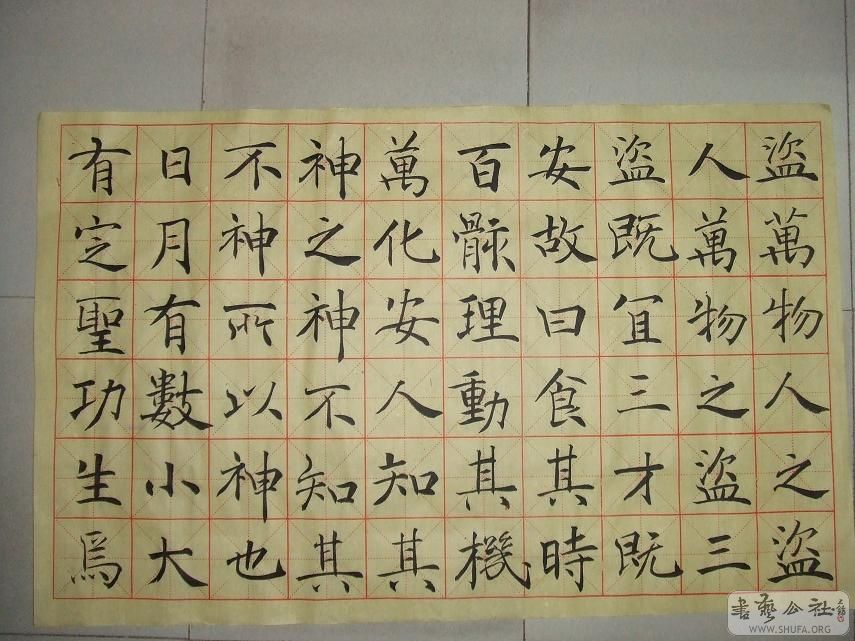 盜萬物人之盜
人萬物之盜三
盜既宜三才既
安故曰食其時
百骸理動其機
萬化安人知其
神之神不知其
不神所以神也
日月有數小大
有定聖功生焉
書藝公社
WWW.SHUFA.ORG